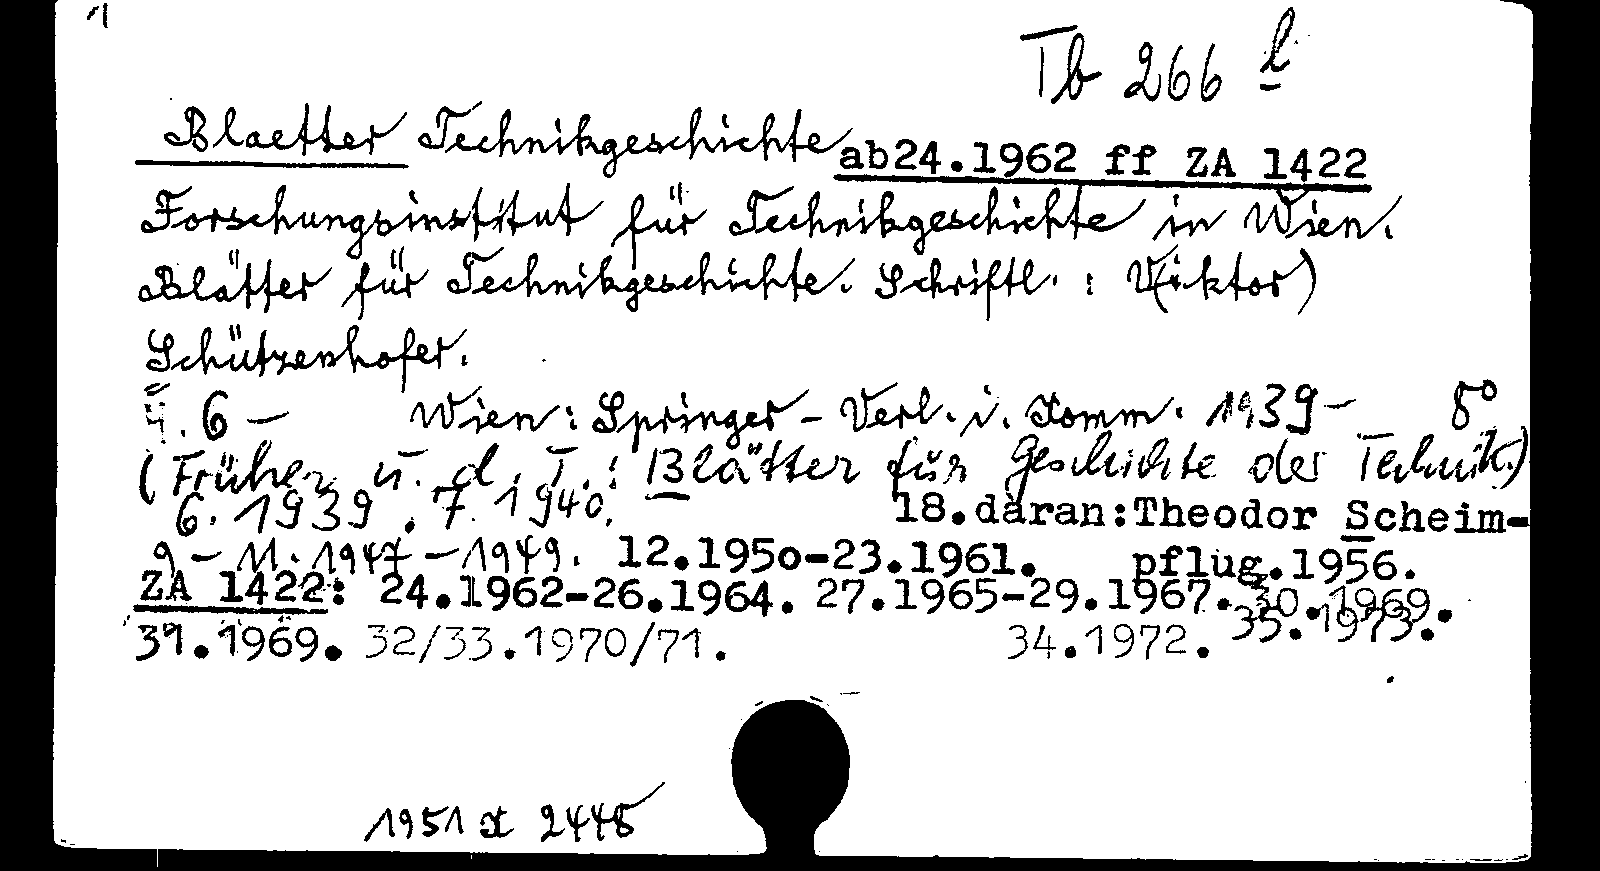 1
Tb 266 l
Blaetter Technikgeschichte ab24.1962 ff ZA 1422
Forschungsinstitut für Technikgeschichte in Wien.
Blätter für Technikgeschichte. Schriftl. : V(iktor)
Schützenhofer.
H. 6 – Wien: Springer – Verl. i. Komm. 1939 – 8°
(Früher u. d. T.: Blätter für Geschichte der Technik.)
6. 1939. 7. 1940. 18.daran:Theodor Scheim-
9 – 11. 1947 – 1949. 12.1950-23.1961. pflug.1956.
ZA 1422: 24.1962-26.1964. 27.1965-29.1967. 30.1969.
31.1969. 32/33.1970/71. 34.1972. 35.1973.
1951 x 2448